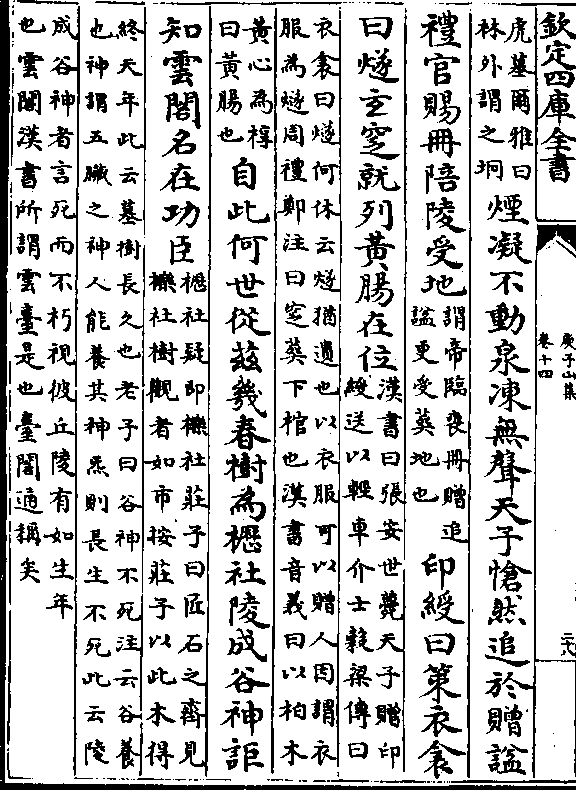 欽定四庫全書
庾子山集
卷十四
二八
虎墓爾雅曰
林外謂之坰
煙凝不動泉凍無聲天子愴然追於贈諡
禮官賜冊陪陵受地
謂帝臨喪冊贈追
諡更受葬地也
印綬曰第衣衾
曰襚玄窆就列黃腸在位
漢書曰張安世薨天子贈印
綬送以輕車介士穀梁傳曰
衣衾曰襚何休云襚猶遺也以衣服可以贈人因謂衣
服為襚周禮鄭注曰窆葬下棺也漢書音義曰以柏木
黃心為椁
曰黃腸也
自此何世從茲幾春樹為櫪社陵成谷神詎
知雲閣名在功臣
櫪社疑即櫟社莊子曰匠石之齊見
櫟社樹觀者如市按莊子以此木得
終天年此云墓樹長久也老子曰谷神不死注云谷養
也神謂五臟之神人能養其神炁則長生不死此云陵
成谷神者言死而不朽視彼丘陵有如生年
也雲閣漢書所謂雲臺是也臺閣通稱矣